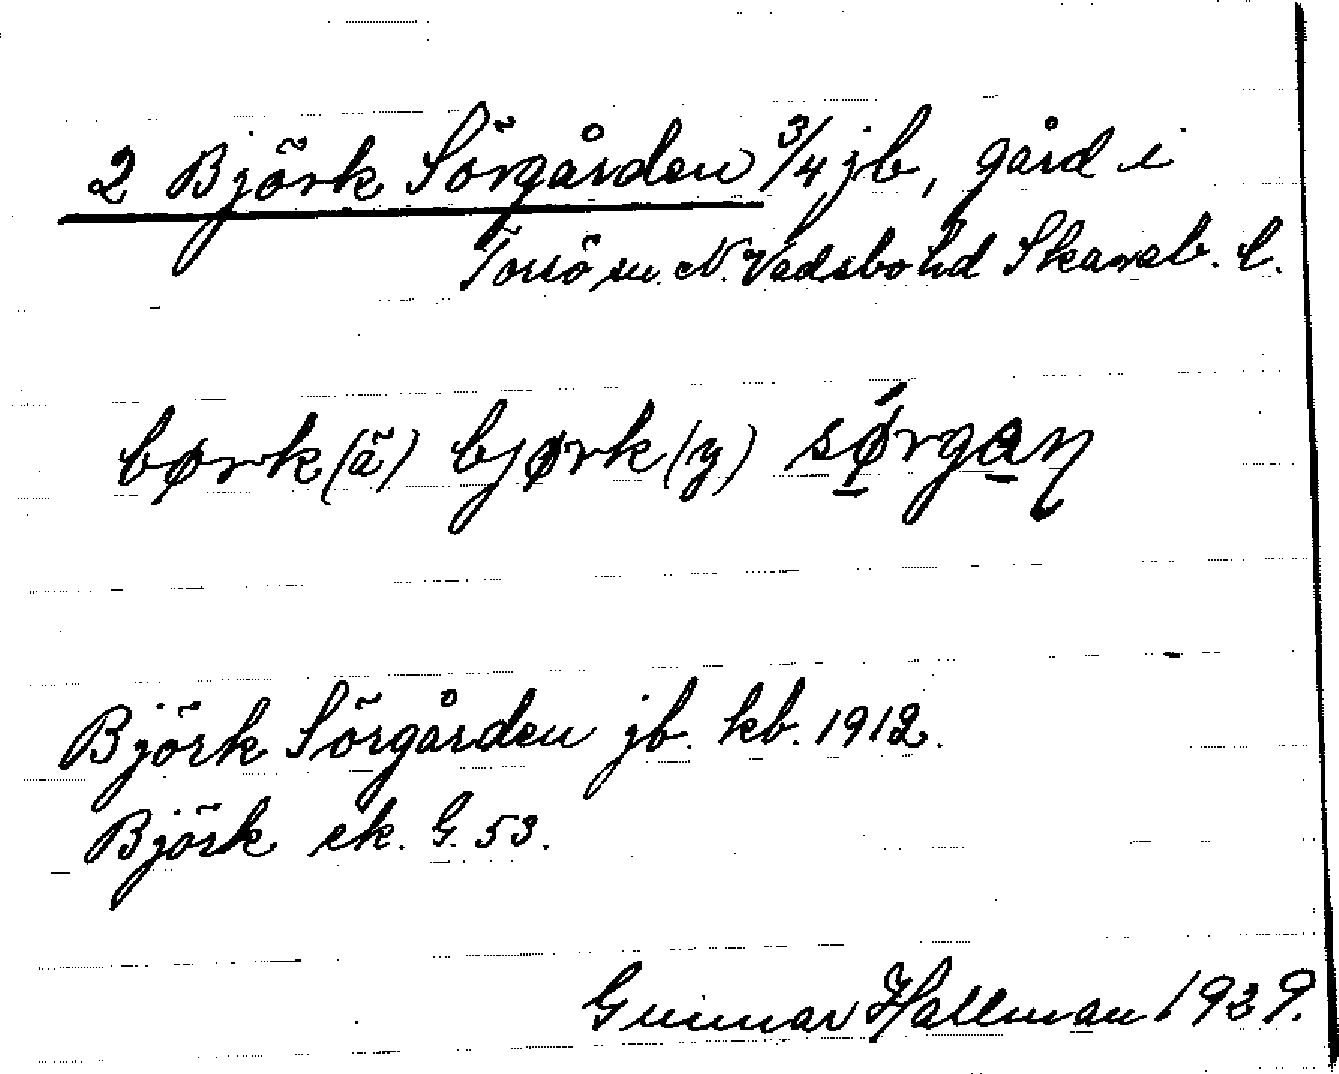 2 Björk Sörgården 3/4 jb, gård i
Torsö sn. N. Vadsbo hd Skarab. l.
børk (ä) bjørk (y) sǿ̠rga̠ɳ
Björk Sörgården jb. kb. 1912.
Björk ek. G. 53.
Gunnar Hallman 1939.